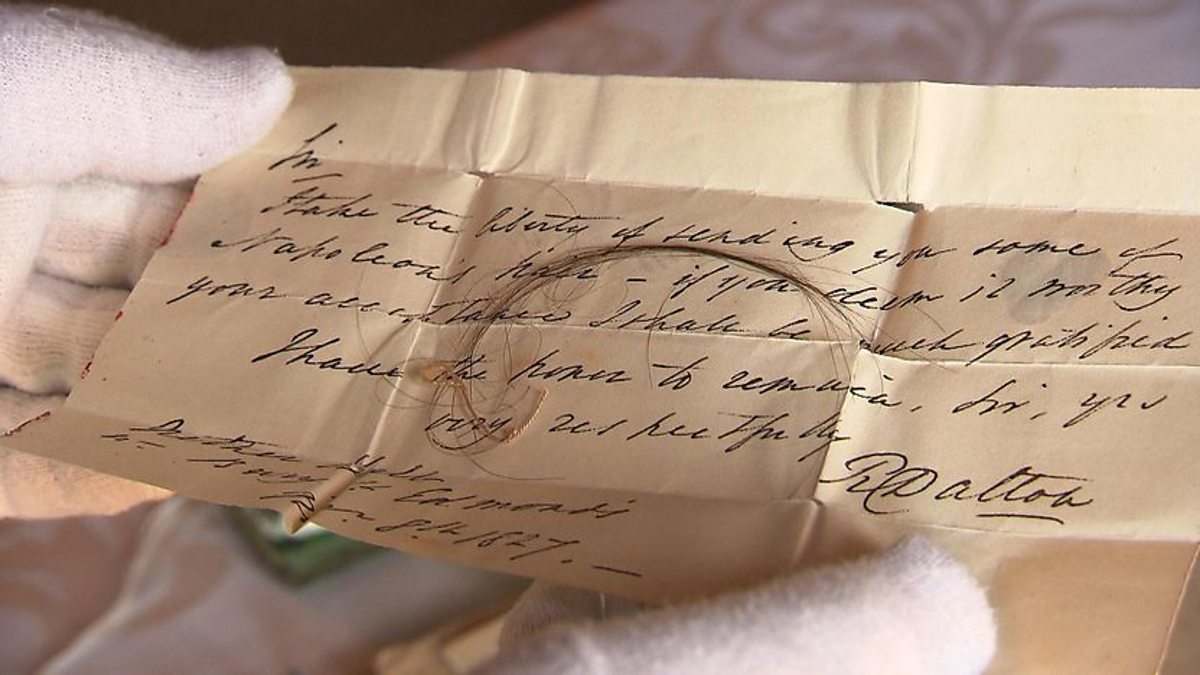 Sir
I take the liberty of sending you some of
Napoleon's hair – if you deem it worthy
your acceptance I shall be much gratified
I have the honor to remain, Sir, yrs
very respectfully
R Dalton
Bury St Edmonds
8th 1827. —